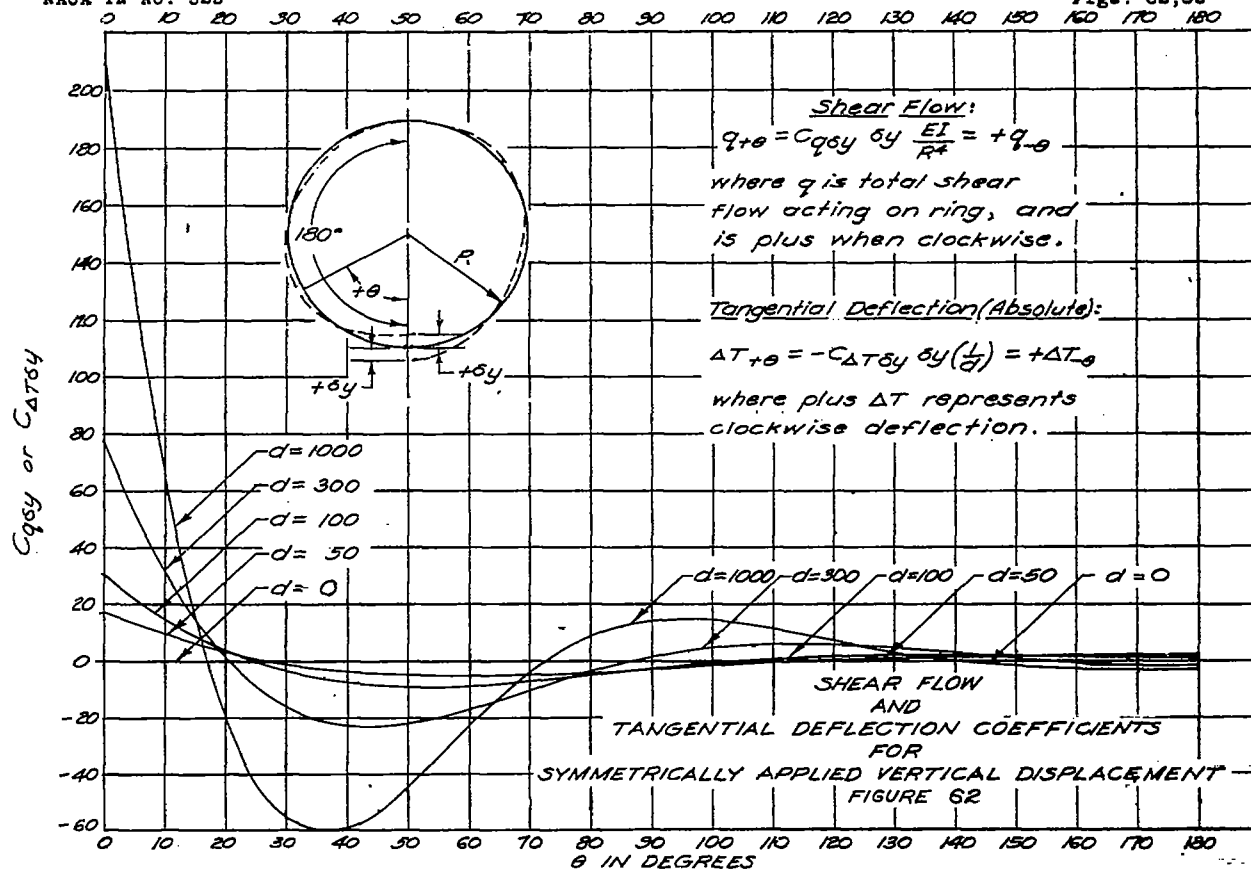 0 10 20 30 40 50 60 70 80 90 100 110 120 130 140 150 160 170 180
200
180
160
140
120
100
80
60
40
20
0
-20
-40
-60
Cqδy or CΔTδy
180°
+θ
R
+δy
+δy
Shear Flow:
q+θ = Cqδy δy EI/R⁴ = +q-θ
where q is total shear
flow acting on ring, and
is plus when clockwise.
Tangential Deflection (Absolute):
ΔT+θ = -CΔTδy δy(1/d) = +ΔT-θ
where plus ΔT represents
clockwise deflection.
d=1000
d= 300
d= 100
d= 50
d= 0
d=1000 d=300 d=100 d=50 d=0
SHEAR FLOW
AND
TANGENTIAL DEFLECTION COEFFICIENTS
FOR
SYMMETRICALLY APPLIED VERTICAL DISPLACEMENT
FIGURE 62
0 10 20 30 40 50 60 70 80 90 100 110 120 130 140 150 160 170 180
θ IN DEGREES